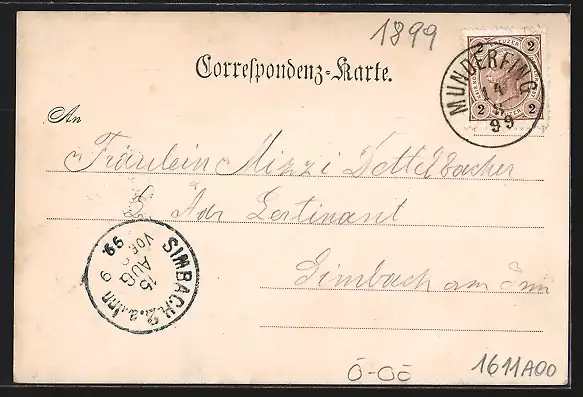 1899
Correspondenz-Karte.
2 KREUZER 2
2 2
MUNDERFING
14
8
99
An
Fräulein Mizzi Dettelbacher
Adr
Simbach am Inn
SIMBACH B.a.Inn
15
AUG
VOR
99
9
Ö-OÖ
1611A00